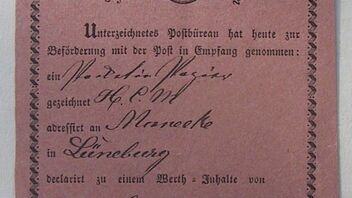 Unterzeichnetes Postbüreau hat heute zur
Beförderung mit der Post in Empfang genommen:
ein Packetin Papier
gezeichnet H. C. M
adressirt an Manecke
in Lüneburg
declarirt zu einem Werth-Inhalte von